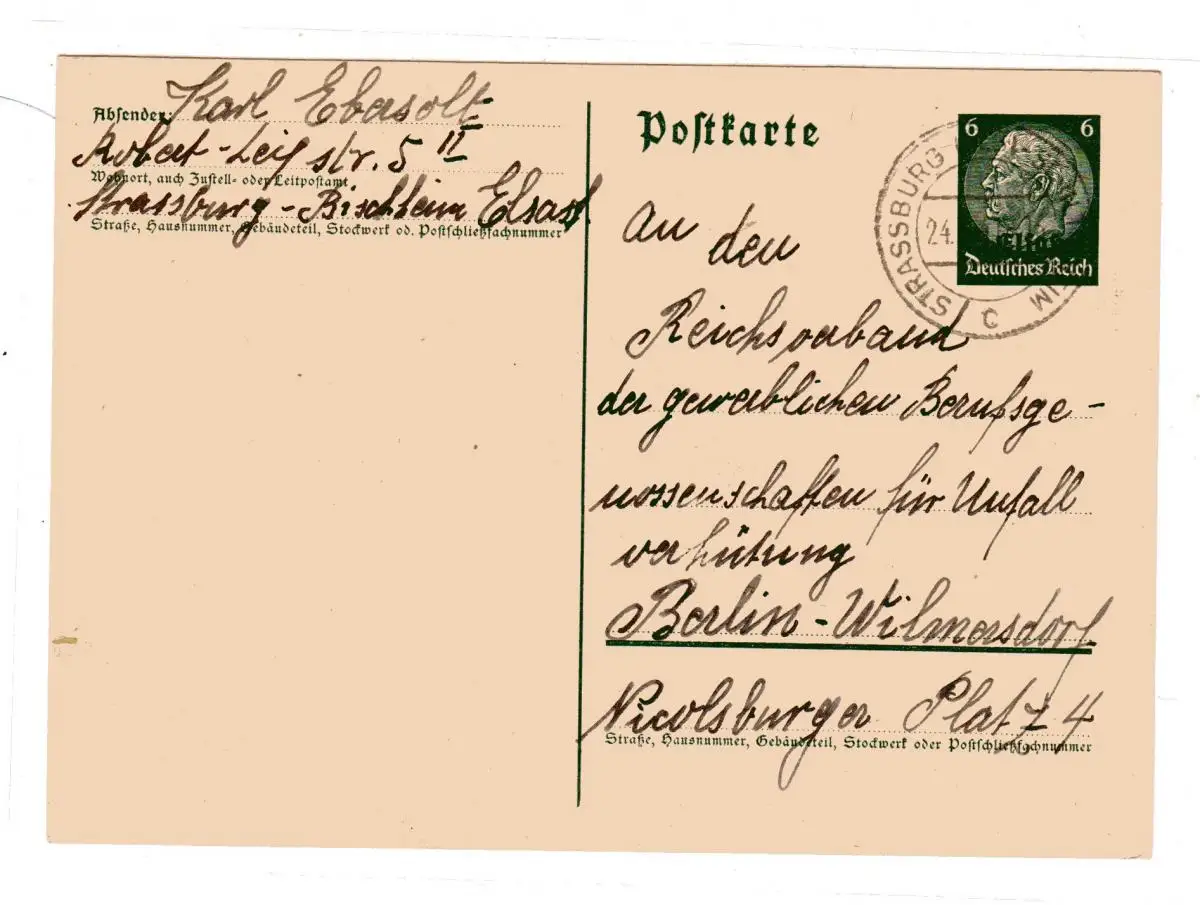 Absender: Karl Ebersolt
Robert-Leif str. 5 II
Wohnort, auch Zustell- oder Leitpostamt
Strassburg - Bischheim Elsass
Straße, Hausnummer, Gebäudeteil, Stockwerk od. Postschließfachnummer
Postkarte
6 6
Elsaß
Deutsches Reich
STRASSBURG
24.
An den
Reichsverband
der gewerblichen Berufsge-
nossenschaften für Unfall
verhütung
Berlin-Wilmersdorf
Nicolsburger Platz 4
Straße, Hausnummer, Gebäudeteil, Stockwerk oder Postschließfachnummer